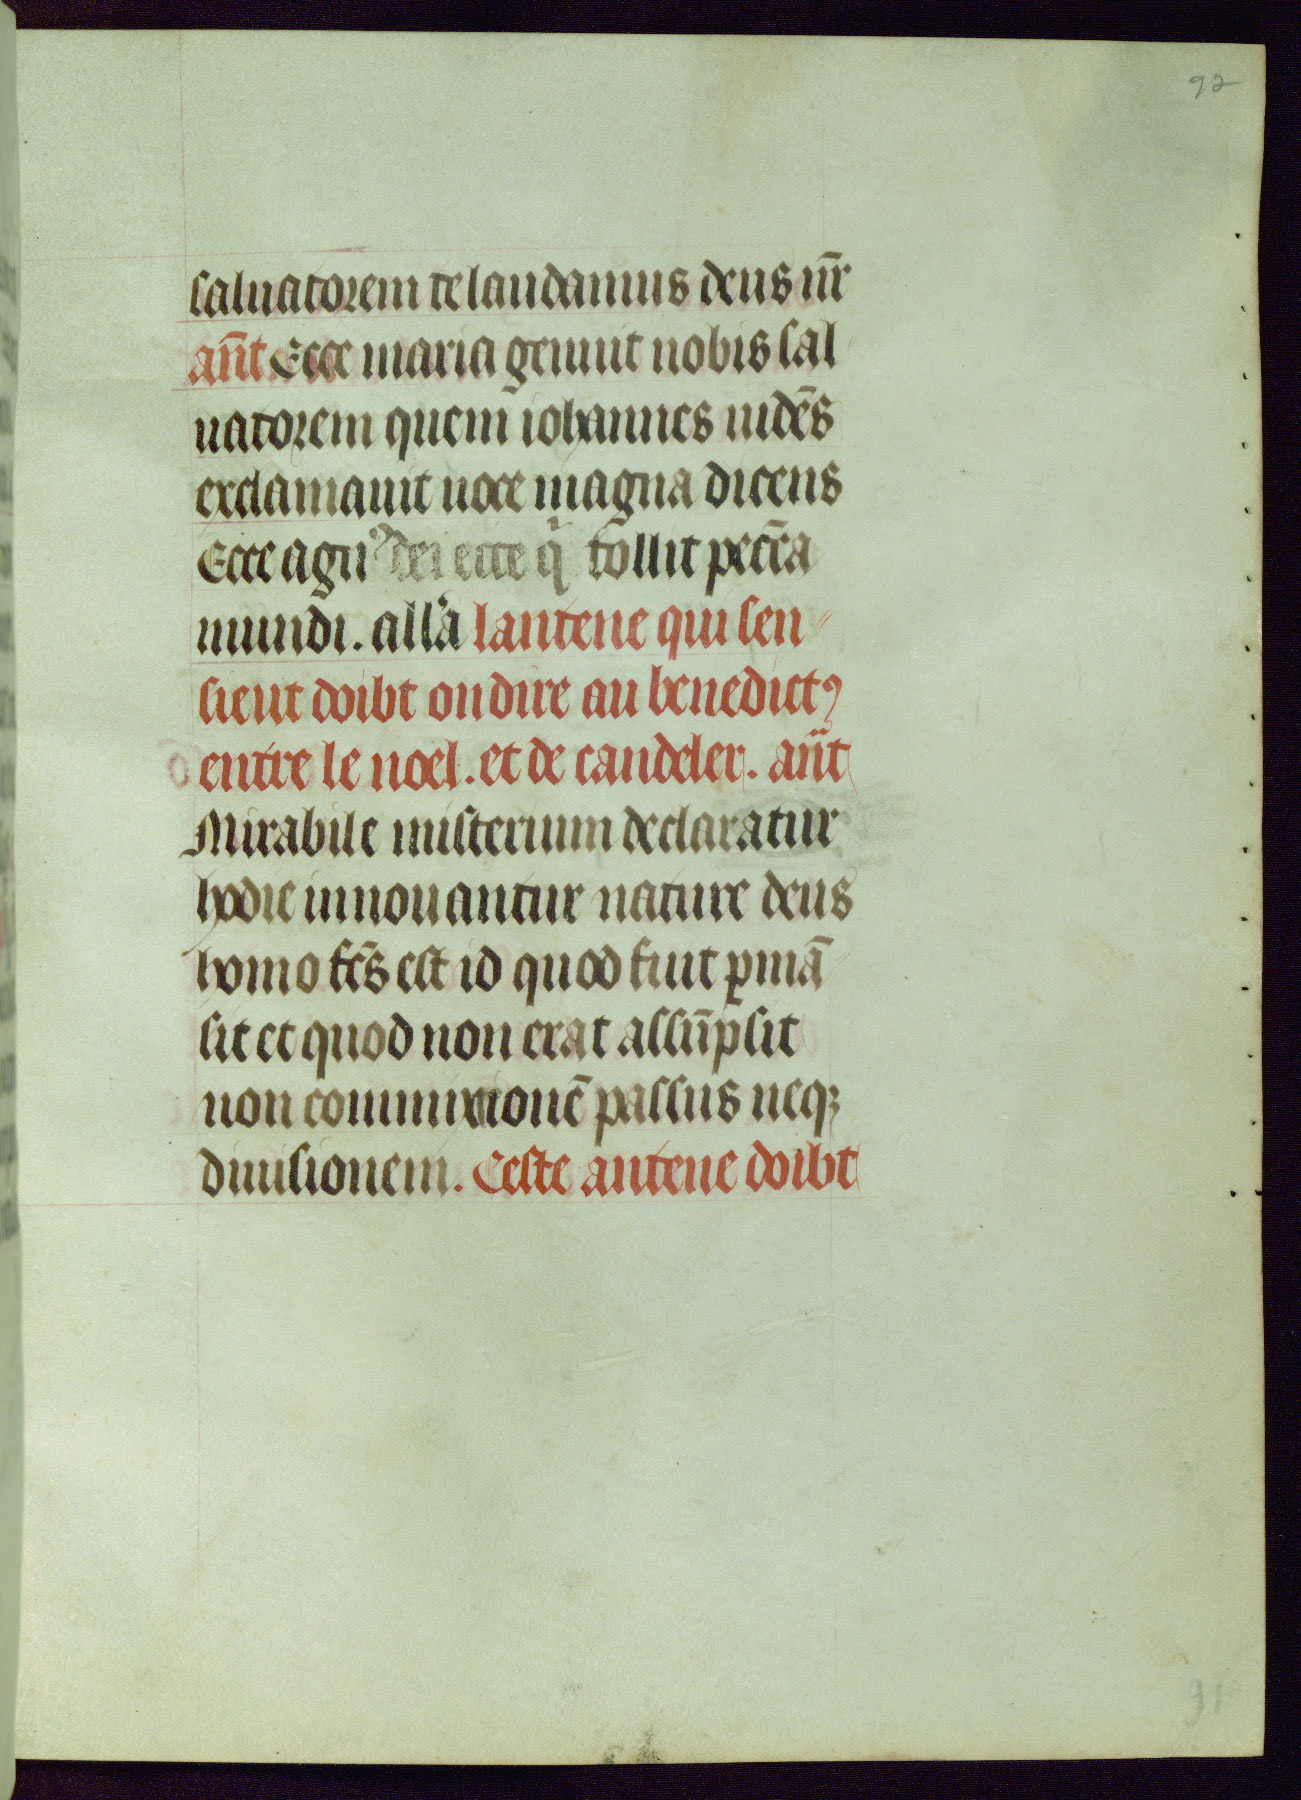 92
saluatorem te laudamus deus nr̄
an̄t Ecce maria genuit nobis sal
uatorem quem iohannes uidēs
exclamauit uoce magna dicens
Ecce agnꝰ dei ecce qͥ tollit pecc̄a
mundi. all'a lantene qui sen
sieut doibt on dire au benedictꝰ
entre le noel. et de candeler. an̄t
Mirabile misterium declaratur
hodie innouantur nature deus
homo fc̄s est id quod fuit ꝑmā
sit et quod non erat assūpsit
non commixionē passus neqꝫ
diuisionem. Ceste antene doibt
91